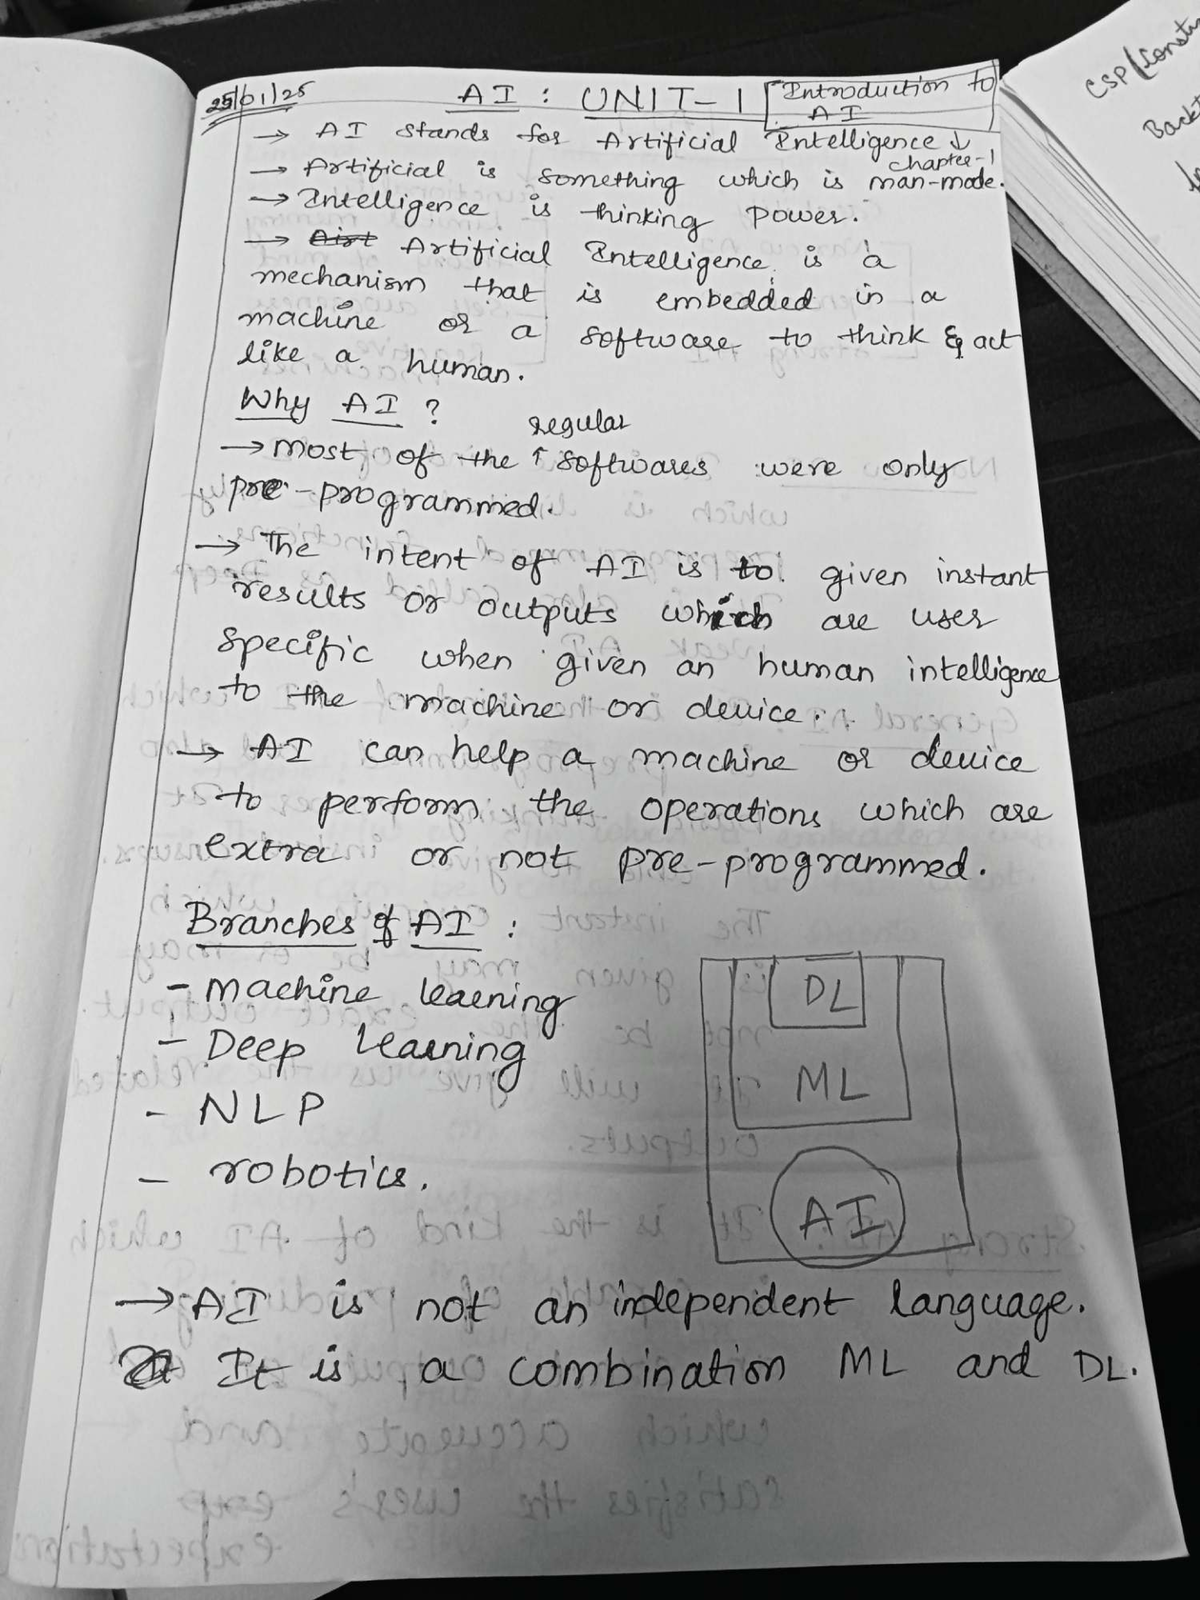 25/01/25
AI : UNIT-1
Introduction to
AI
→ AI stands for Artificial Intelligence ↓
chapter-1
→ Artificial is something which is man-mode.
→ Intelligence is thinking power.
→ Artificial Intelligence is a
mechanism that is embedded in a
machine or a software to think & act
like a human.
Why AI ?
regular
→ Most of the ↑ softwares were only
pre-programmed.
→ The intent of AI is to given instant
results or outputs which are user
specific when given an human intelligence
to the machine or device.
→ AI can help a machine or device
to perform the operations which are
extra or not pre-programmed.
Branches of AI :
- Machine learning
- Deep learning
- NLP
- robotics.
DL
ML
AI
→ AI is not an independent language.
It is a combination ML and DL.
CSP
Backt